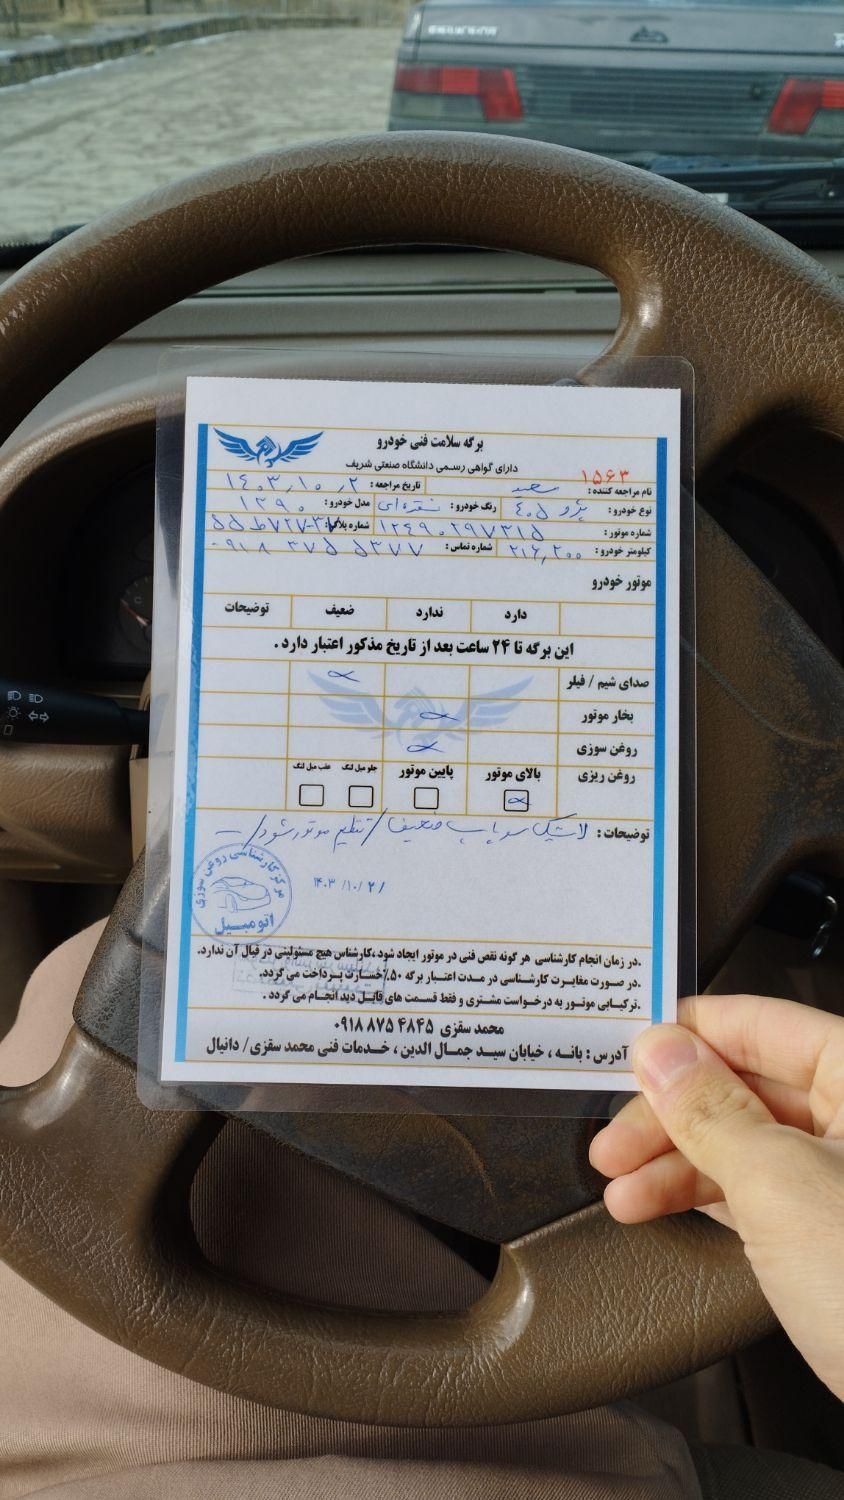 برگه سلامت فنی خودرو
دارای گواهی رسمی دانشگاه صنعتی شریف
۱۵۶۳
نام مراجعه کننده : سعید تاریخ مراجعه : ۱۴۰۳٫۱۰٫۲
نوع خودرو : پژو ۴۰۵ رنگ خودرو : نقره‌ای مدل خودرو : ۱۳۹۰
شماره موتور : ۱۲۴۹۰۲۹۷۳۱۵ شماره پلاک :
کیلومتر خودرو : ۲۱۶,۲۰۰ شماره تماس : ۰۹۱۸ ۳۷۵ ۵۳۷۷
موتور خودرو
دارد ندارد ضعیف توضیحات
این برگه تا ۲۴ ساعت بعد از تاریخ مذکور اعتبار دارد .
صدای شیم / فیلر
بخار موتور
روغن سوزی
روغن ریزی بالای موتور پایین موتور جلو میل لنگ عقب میل لنگ
توضیحات : لاستیک سوپاپ ضعیف / تنظیم موتور شود /
۱۴۰۳/۱۰/۲/
مرکز کارشناسی روغن سوزی
اتومبیل
.در زمان انجام کارشناسی هر گونه نقص فنی در موتور ایجاد شود ،کارشناس هیچ مسئولیتی در قبال آن ندارد.
.در صورت مغایرت کارشناسی در مدت اعتبار برگه ۵۰٪خسارت پرداخت می گردد.
.ترکیابی موتور به درخواست مشتری و فقط قسمت های قابل دید انجام می گردد .
محمد سقزی ۴۸۴۵ ۸۷۵ ۰۹۱۸
آدرس : بانه ، خیابان سید جمال الدین ، خدمات فنی محمد سقزی/ دانیال